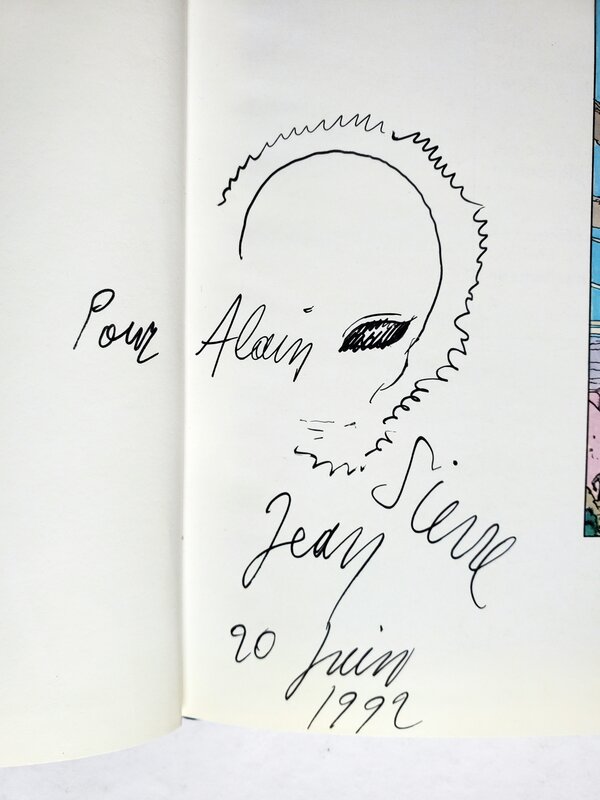 Pour Alain
Jean Pierre
20 Juin
1992